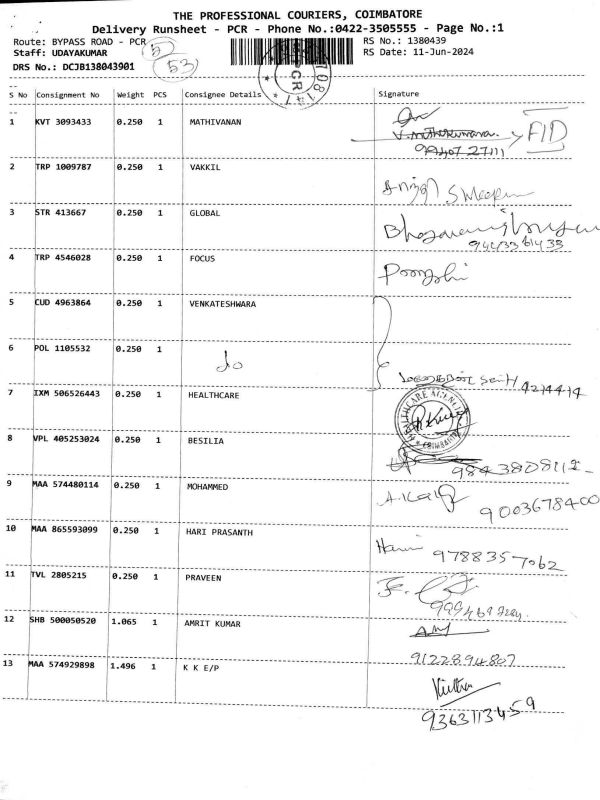 THE PROFESSIONAL COURIERS, COIMBATORE
Delivery Runsheet - PCR - Phone No.:0422-3505555 - Page No.:1
Route: BYPASS ROAD - PCR RS No.: 1380439
Staff: UDAYAKUMAR RS Date: 11-Jun-2024
DRS No.: DCJB138043901
53
PCR
S No Consignment No Weight PCS Consignee Details Signature
1 KVT 3093433 0.250 1 MATHIVANAN
99407 27111
2 TRP 1009787 0.250 1 VAKKIL
3 STR 413667 0.250 1 GLOBAL
4 TRP 4546028 0.250 1 FOCUS
5 CUD 4963864 0.250 1 VENKATESHWARA
6 POL 1105532 0.250 1
do
7 IXM 506526443 0.250 1 HEALTHCARE
8 VPL 405253024 0.250 1 BESILIA
9843808112
9 MAA 574480114 0.250 1 MOHAMMED
9003678400
10 MAA 865593099 0.250 1 HARI PRASANTH
Hari 9788357062
11 TVL 2805215 0.250 1 PRAVEEN
12 SHB 500050520 1.065 1 AMRIT KUMAR
9122894807
13 MAA 574929898 1.496 1 K K E/P
9363113459